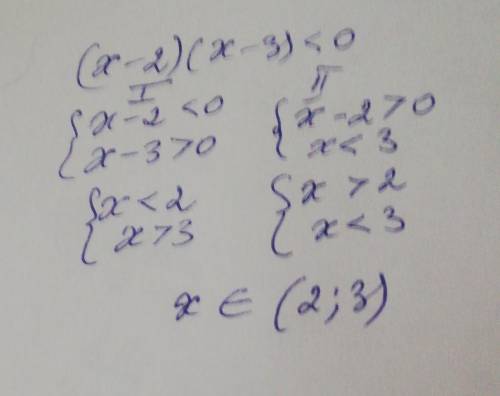 (x-2)(x-3)<0
I
{x-2<0
x-3>0
{x<2
x>3
II
{x-2>0
x<3
{x>2
x<3
x∈(2;3)